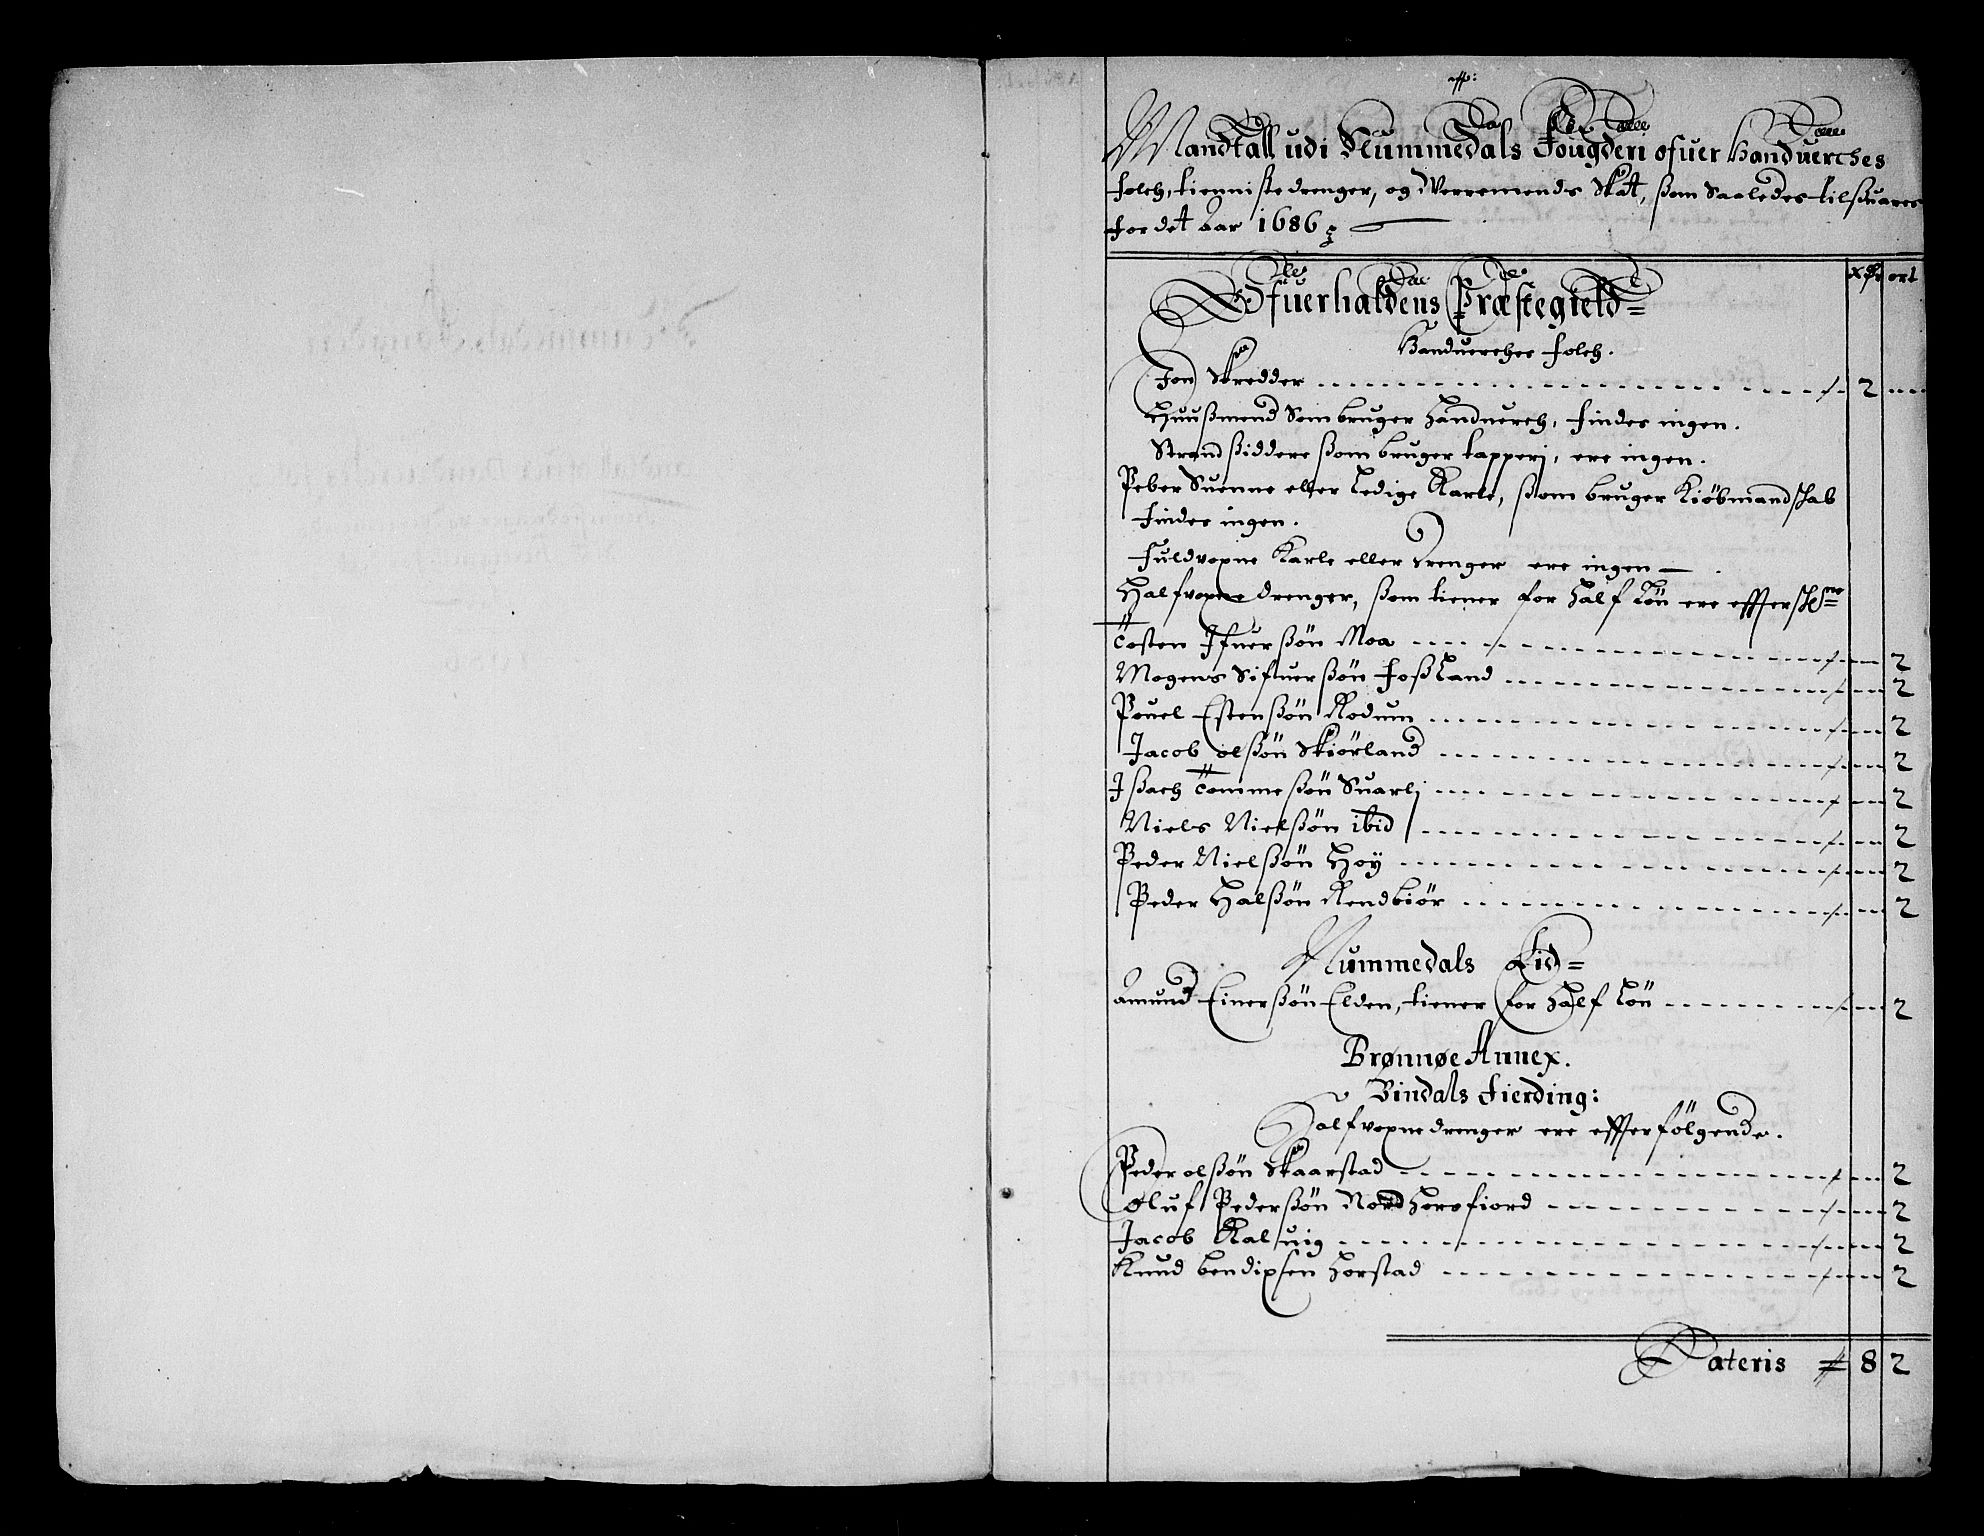 Mandtall udi Nummedals Fougderi ofuer Handuerches
folch, tienniste drenger, og Werremends Skat, som Saaledes tilsuares
for det Aar 1686
ort
Ofuerhaldens Præstegield
Handuerches folch.
Jon Skredder 2
Huussmend Som bruger handuerch, findes ingen.
Strand siddere som bruger tapperj, ere ingen.
Peber Suenne eller Ledige Karle, som bruger Kiøbmandskab
findes ingen.
Fuldvoxne Karle eller Drenger ere ingen
Halfvoxne drenger, som tiener for half Løn ere effterschne
Tosten Ifuersøn Moa 2
Mogens Sifuersøn Fossland 2
Pouel Estensøn Rodum 2
Jacob olsøn Skiörland 2
Isach Tommesøn Suarlj 2
Niels Nielsøn ibid 2
Peder Nielsøn Hoy 2
Peder Halsøn Rendbiör 2
Nummedals Eid
Amund Einersøn Elden, tiener for half Løn 2
Brønnøe Annex.
Bindals Fierding:
Halfvoxne drenger ere effterfölgende.
Peder olsøn Skaarstad 2
Oluf Pedersøn Nordhorsfiord 2
Jacob Kaluig 2
Knud bendixsen Horstad 2
Lateris 8 2